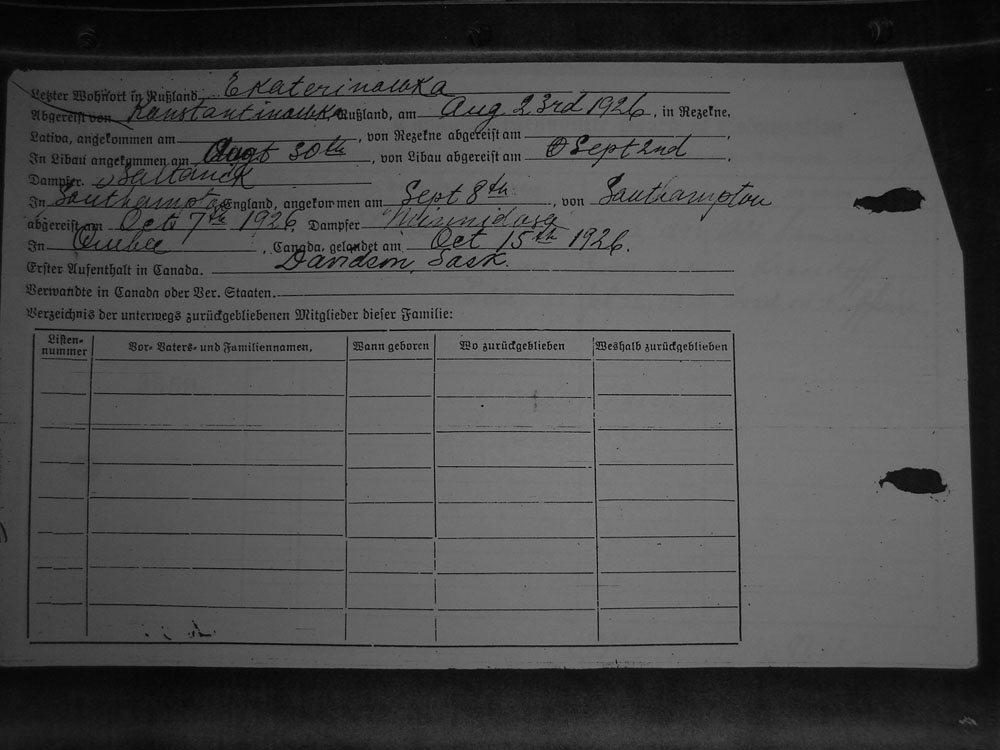 Letzter Wohnort in Rußland Ekaterinowka
Abgereist von Konstantinowka Rußland, am Aug 23rd 1926, in Rezekne,
Lativa, angekommen am , von Rezekne abgereist am ,
In Libau angekommen am Augt 30th , von Libau abgereist am Sept 2nd .
Dampfer. Baltanick
In Southampton England, angekommen am Sept 8th , von Southampton
abgereist am Oct 7th 1926 Dampfer Minnidosa
In Quebec , Canada, gelandet am Oct 15th 1926.
Erster Aufenthalt in Canada. Davidson, Sask.
Verwandte in Canada oder Ver. Staaten.
Verzeichnis der unterwegs zurückgebliebenen Mitglieder dieser Familie:
Listen-nummer Vor- Vaters- und Familiennamen, Wann geboren Wo zurückgeblieben Weshalb zurückgeblieben